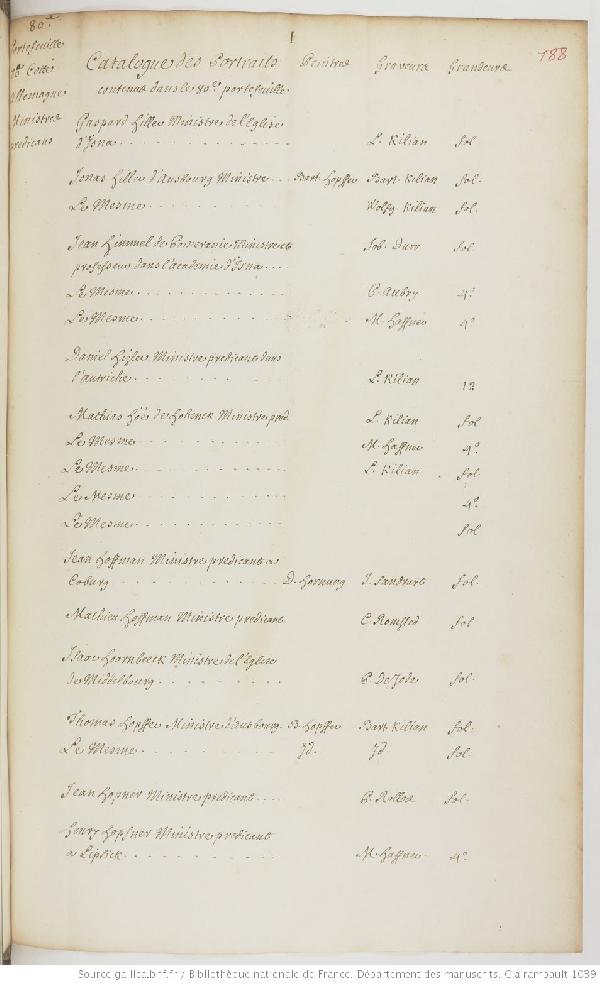 80.e
Portefeuille
Cotté
Allemagne
Ministres
predicans
1
188
Catalogue des Portraits Peintres Graveurs Grandeurs
contenus dans le 80.e portefeuille
Gaspard Hiller Ministre de l'Eglise
d'Isna L. Kilian fol
Jonas Hiller d'Ausbourg Ministre Bart. Hopffer Bart. Kilian fol.
Le Mesme Wolfg. Kilian fol.
Jean Himmel de Pomeranie Ministre et Job. Durr fol
professeur dans l'academie d'Isna
Le Mesme P. Aubry 4.o
Le Mesme M. Haffner 4.o
Daniel Hizler Ministre predicant dans
l'autriche L. Kilian 12
Mathias Höe de Hohenck Ministre pred. L. Kilian fol
Le Mesme M. Haffner 4.o
Le Mesme L. Kilian fol.
Le Mesme 4.o
Le Mesme fol
Jean Hoffman Ministre predicant a
Coburg D. Hornung J. Sandrart fol.
Mathieu Hoffman Ministre predicant C. Romsted fol
Isaac Hoornbeeck Ministre de l'Eglise
de Middelbourg P. De Jode fol.
Thomas Hopffer Ministre d'ausbourg B. Hopffer Bart. Kilian fol.
Le Mesme Jd. Jd. fol.
Jean Hopner Ministre predicant P. Rollos fol.
Henry Hopfner Ministre predicant
a Lipsick M. Haffner 4.o
Source gallica.bnf.fr / Bibliothèque nationale de France. Département des manuscrits. Clairambault 1039